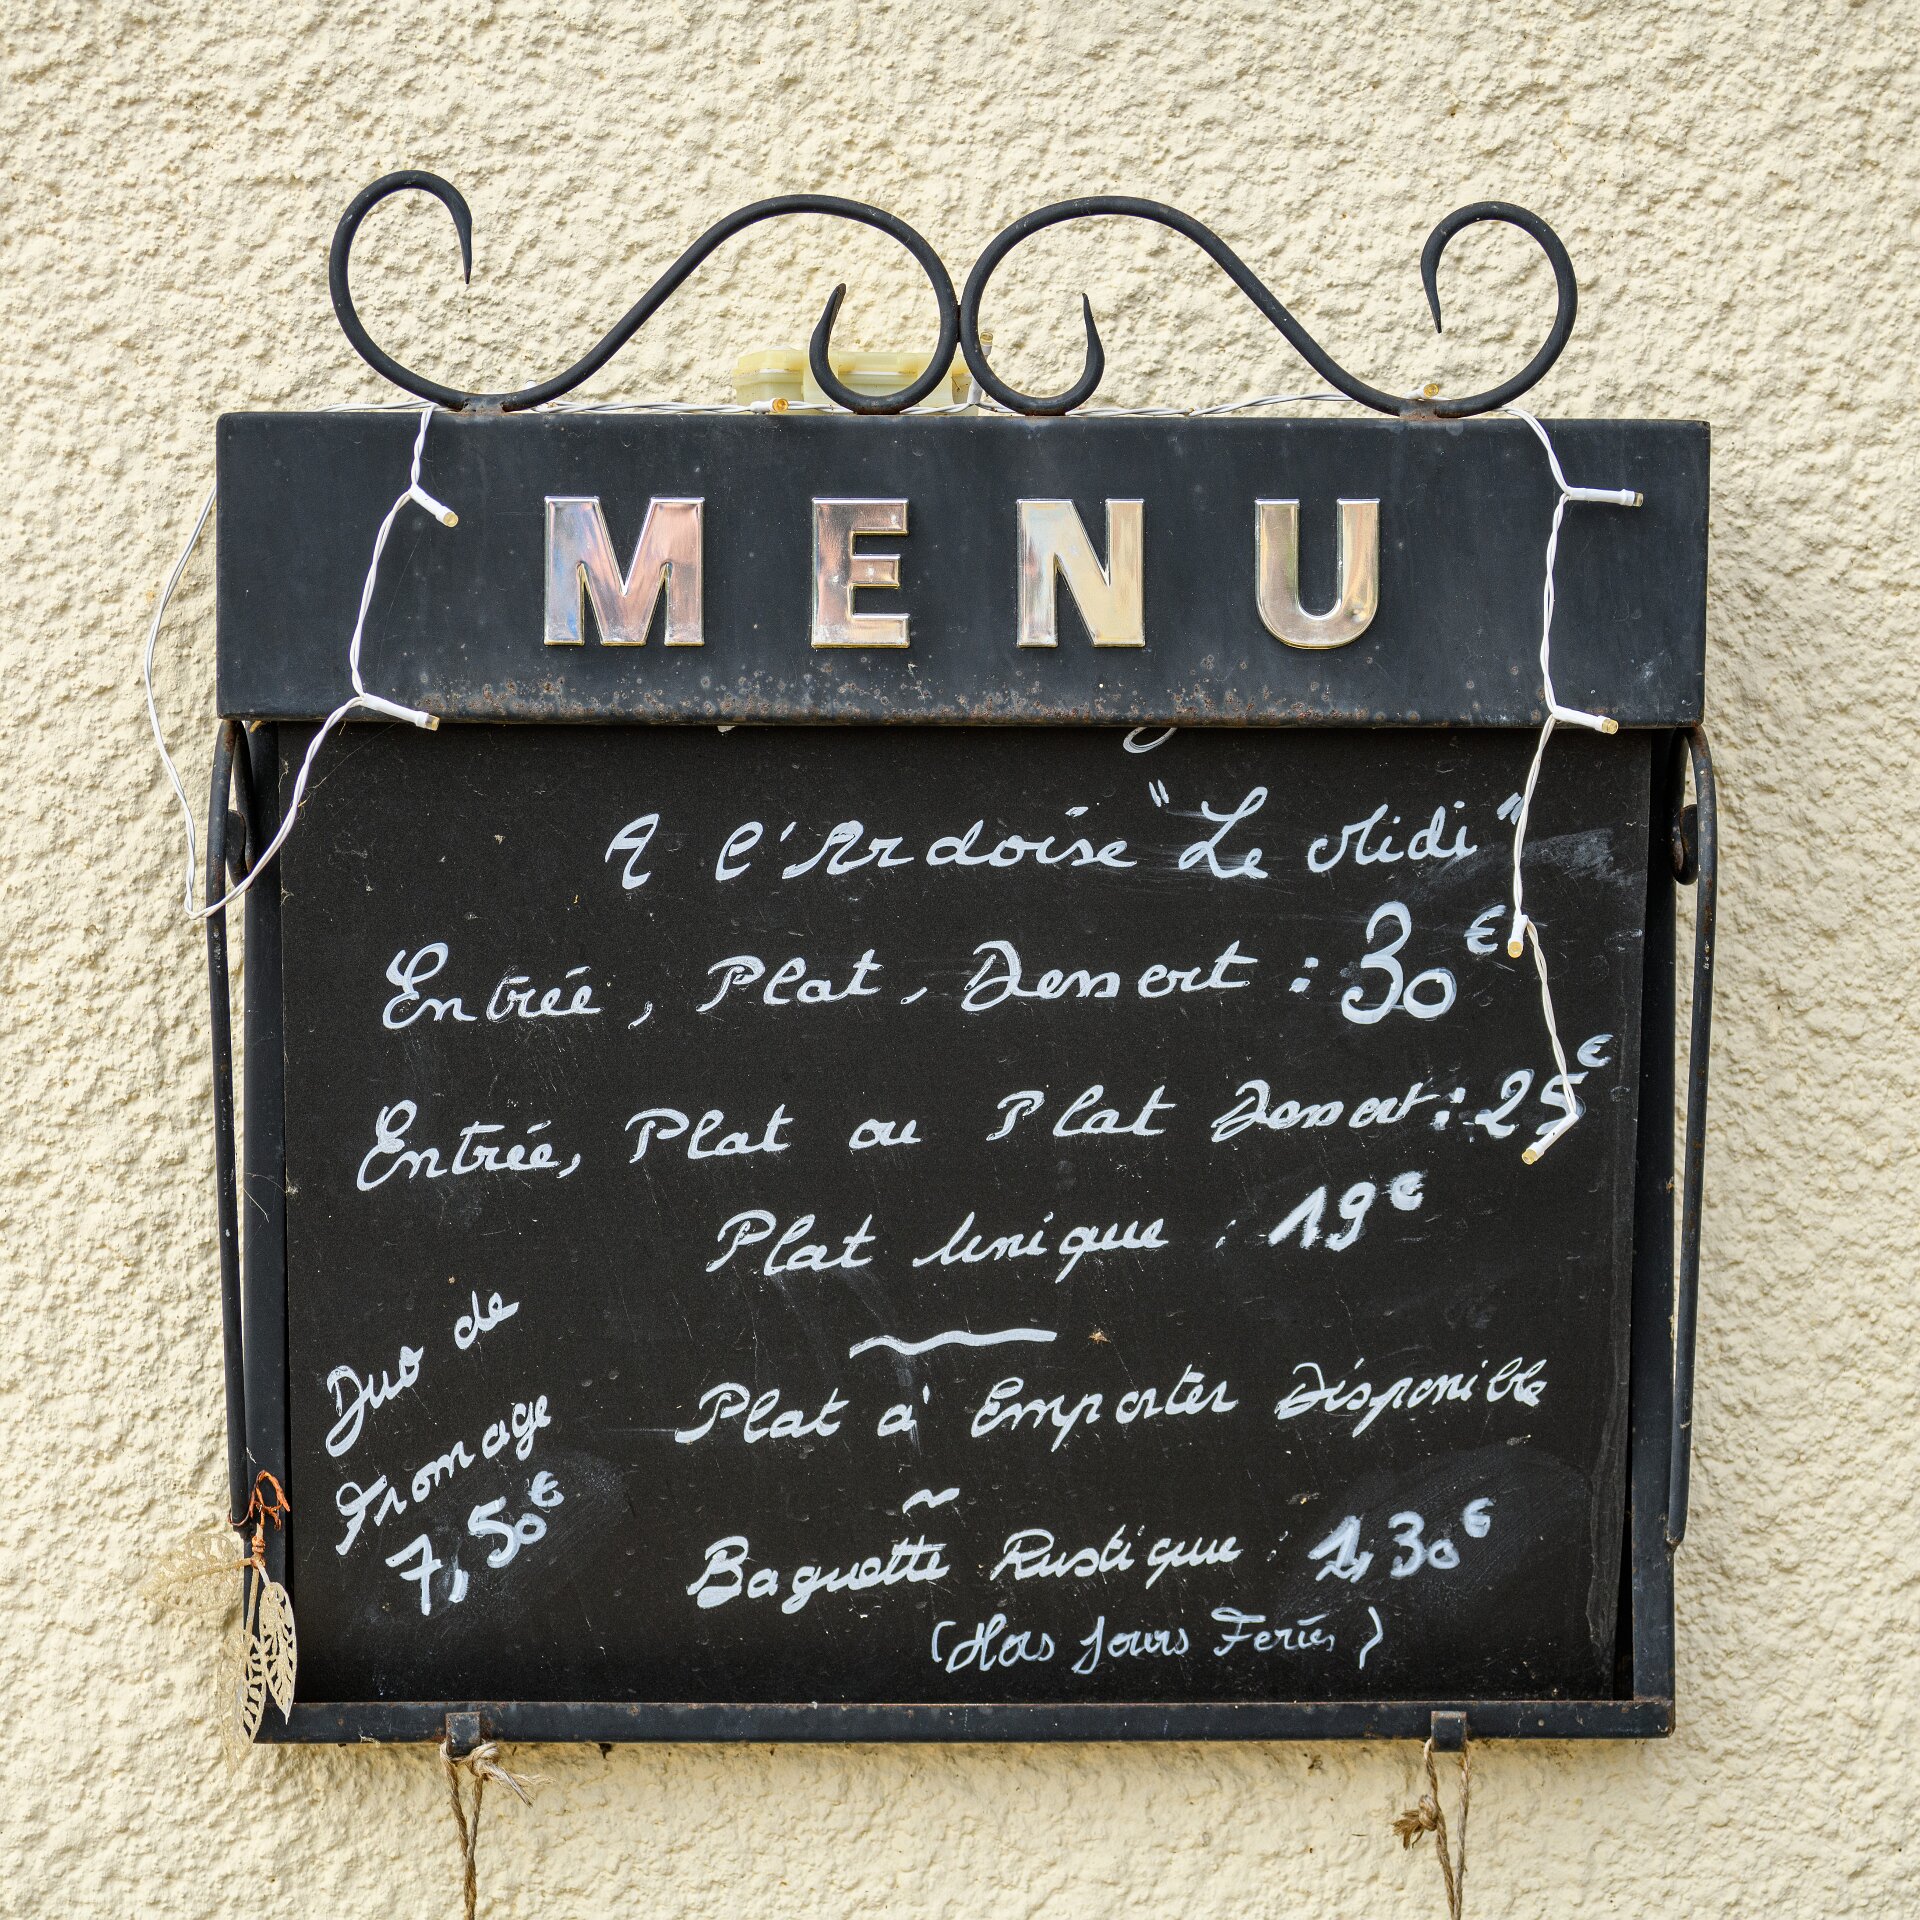 MENU
A l'Ardoise "Le Midi"
Entrée, Plat, Dessert : 30€
Entrée, Plat ou Plat Dessert : 25€
Plat Unique : 19€
Duo de
Fromage
7,50€
Plat à Emporter Disponible
Baguette Rustique : 1,30€
(Hors Jours Feriés)